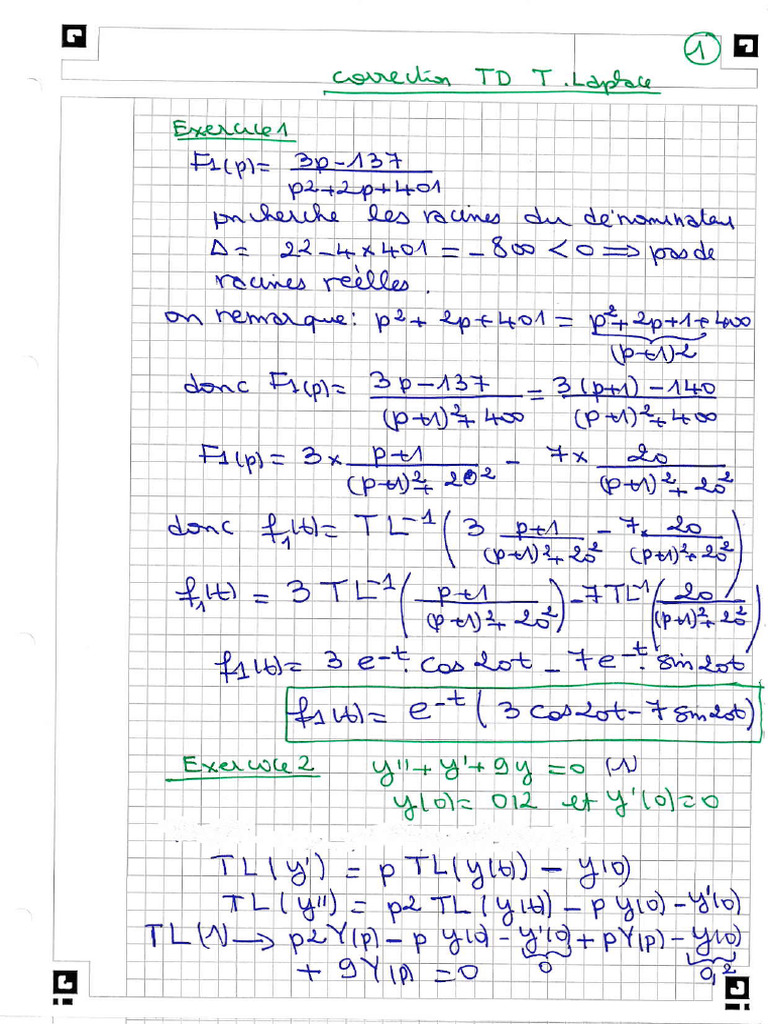 1
Correction TD T. Laplace
Exercice 1
F1(p) = (3p-137)/(p²+2p+401)
on cherche les racines du dénominateur
Δ = 2²-4×401 = -800 < 0 ⟹ pas de
racines réelles.
on remarque : p²+2p+401 = p²+2p+1+400
(p+1)²
donc F1(p) = (3p-137)/((p+1)²+400) = (3(p+1)-140)/((p+1)²+400)
F1(p) = 3 × (p+1)/((p+1)²+20²) - 7 × 20/((p+1)²+20²)
donc f1(t) = TL⁻¹(3 (p+1)/((p+1)²+20²) - 7 × 20/((p+1)²+20²))
f1(t) = 3 TL⁻¹((p+1)/((p+1)²+20²)) - 7 TL⁻¹(20/((p+1)²+20²))
f1(t) = 3 e^-t . cos 20t - 7 e^-t . sin 20t
f1(t) = e^-t (3 cos 20t - 7 sin 20t)
Exercice 2 y'' + y' + 9y = 0 (1)
y(0) = 0,2 et y'(0) = 0
TL(y') = p TL(y(t)) - y(0)
TL(y'') = p² TL(y(t)) - p y(0) - y'(0)
TL(1) → p²Y(p) - p y(0) - y'(0) + pY(p) - y(0)
+ 9Y(p) = 0 0 0,2